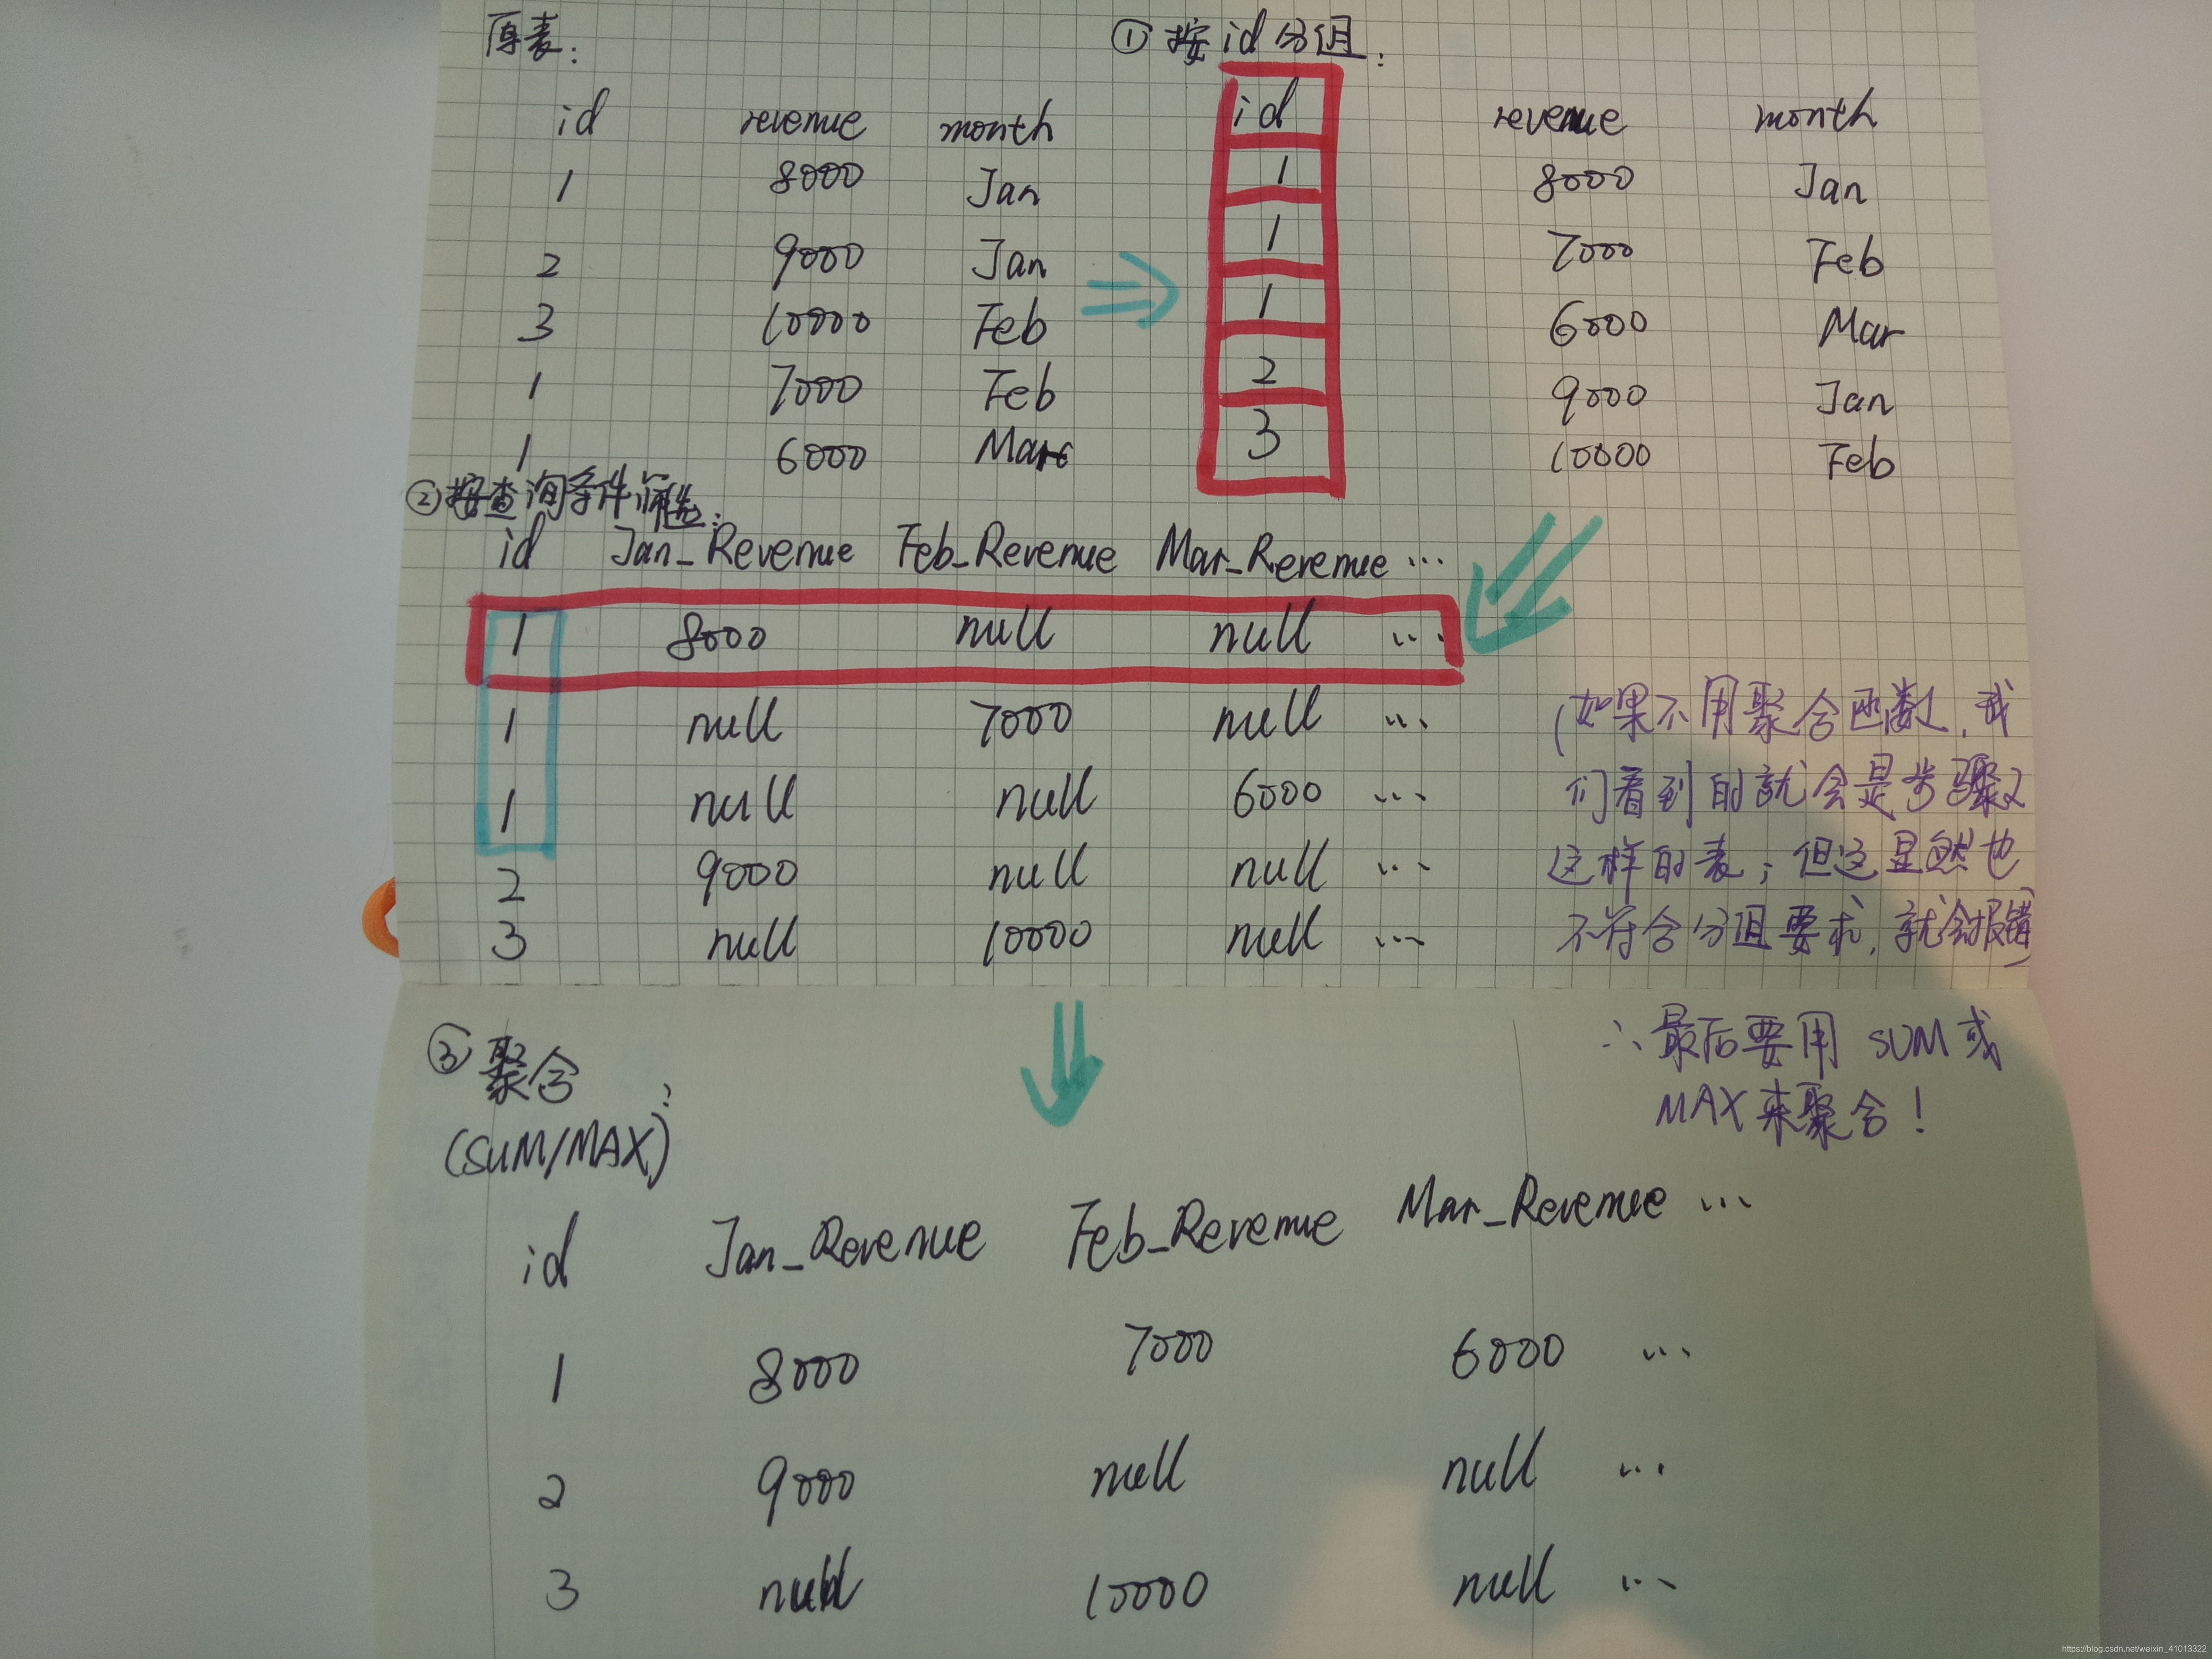 原表:
id revenue month
1 8000 Jan
2 9000 Jan
3 10000 Feb
1 7000 Feb
1 6000 Mar
① 按id分组:
id revenue month
1 8000 Jan
1 7000 Feb
1 6000 Mar
2 9000 Jan
3 10000 Feb
②按查询条件筛选:
id Jan_Revenue Feb_Revenue Mar_Revenue ...
1 8000 null null ...
1 null 7000 null ...
1 null null 6000 ...
2 9000 null null ...
3 null 10000 null ...
(如果不用聚合函数,我
们看到的就会是步骤2
这样的表;但这显然也
不符合分组要求,就会报错)
∴最后要用 SUM或
MAX来聚合!
③ 聚合
(SUM/MAX):
id Jan_Revenue Feb_Revenue Mar_Revenue ...
1 8000 7000 6000 ...
2 9000 null null ...
3 null 10000 null ...
https://blog.csdn.net/weixin_41013322